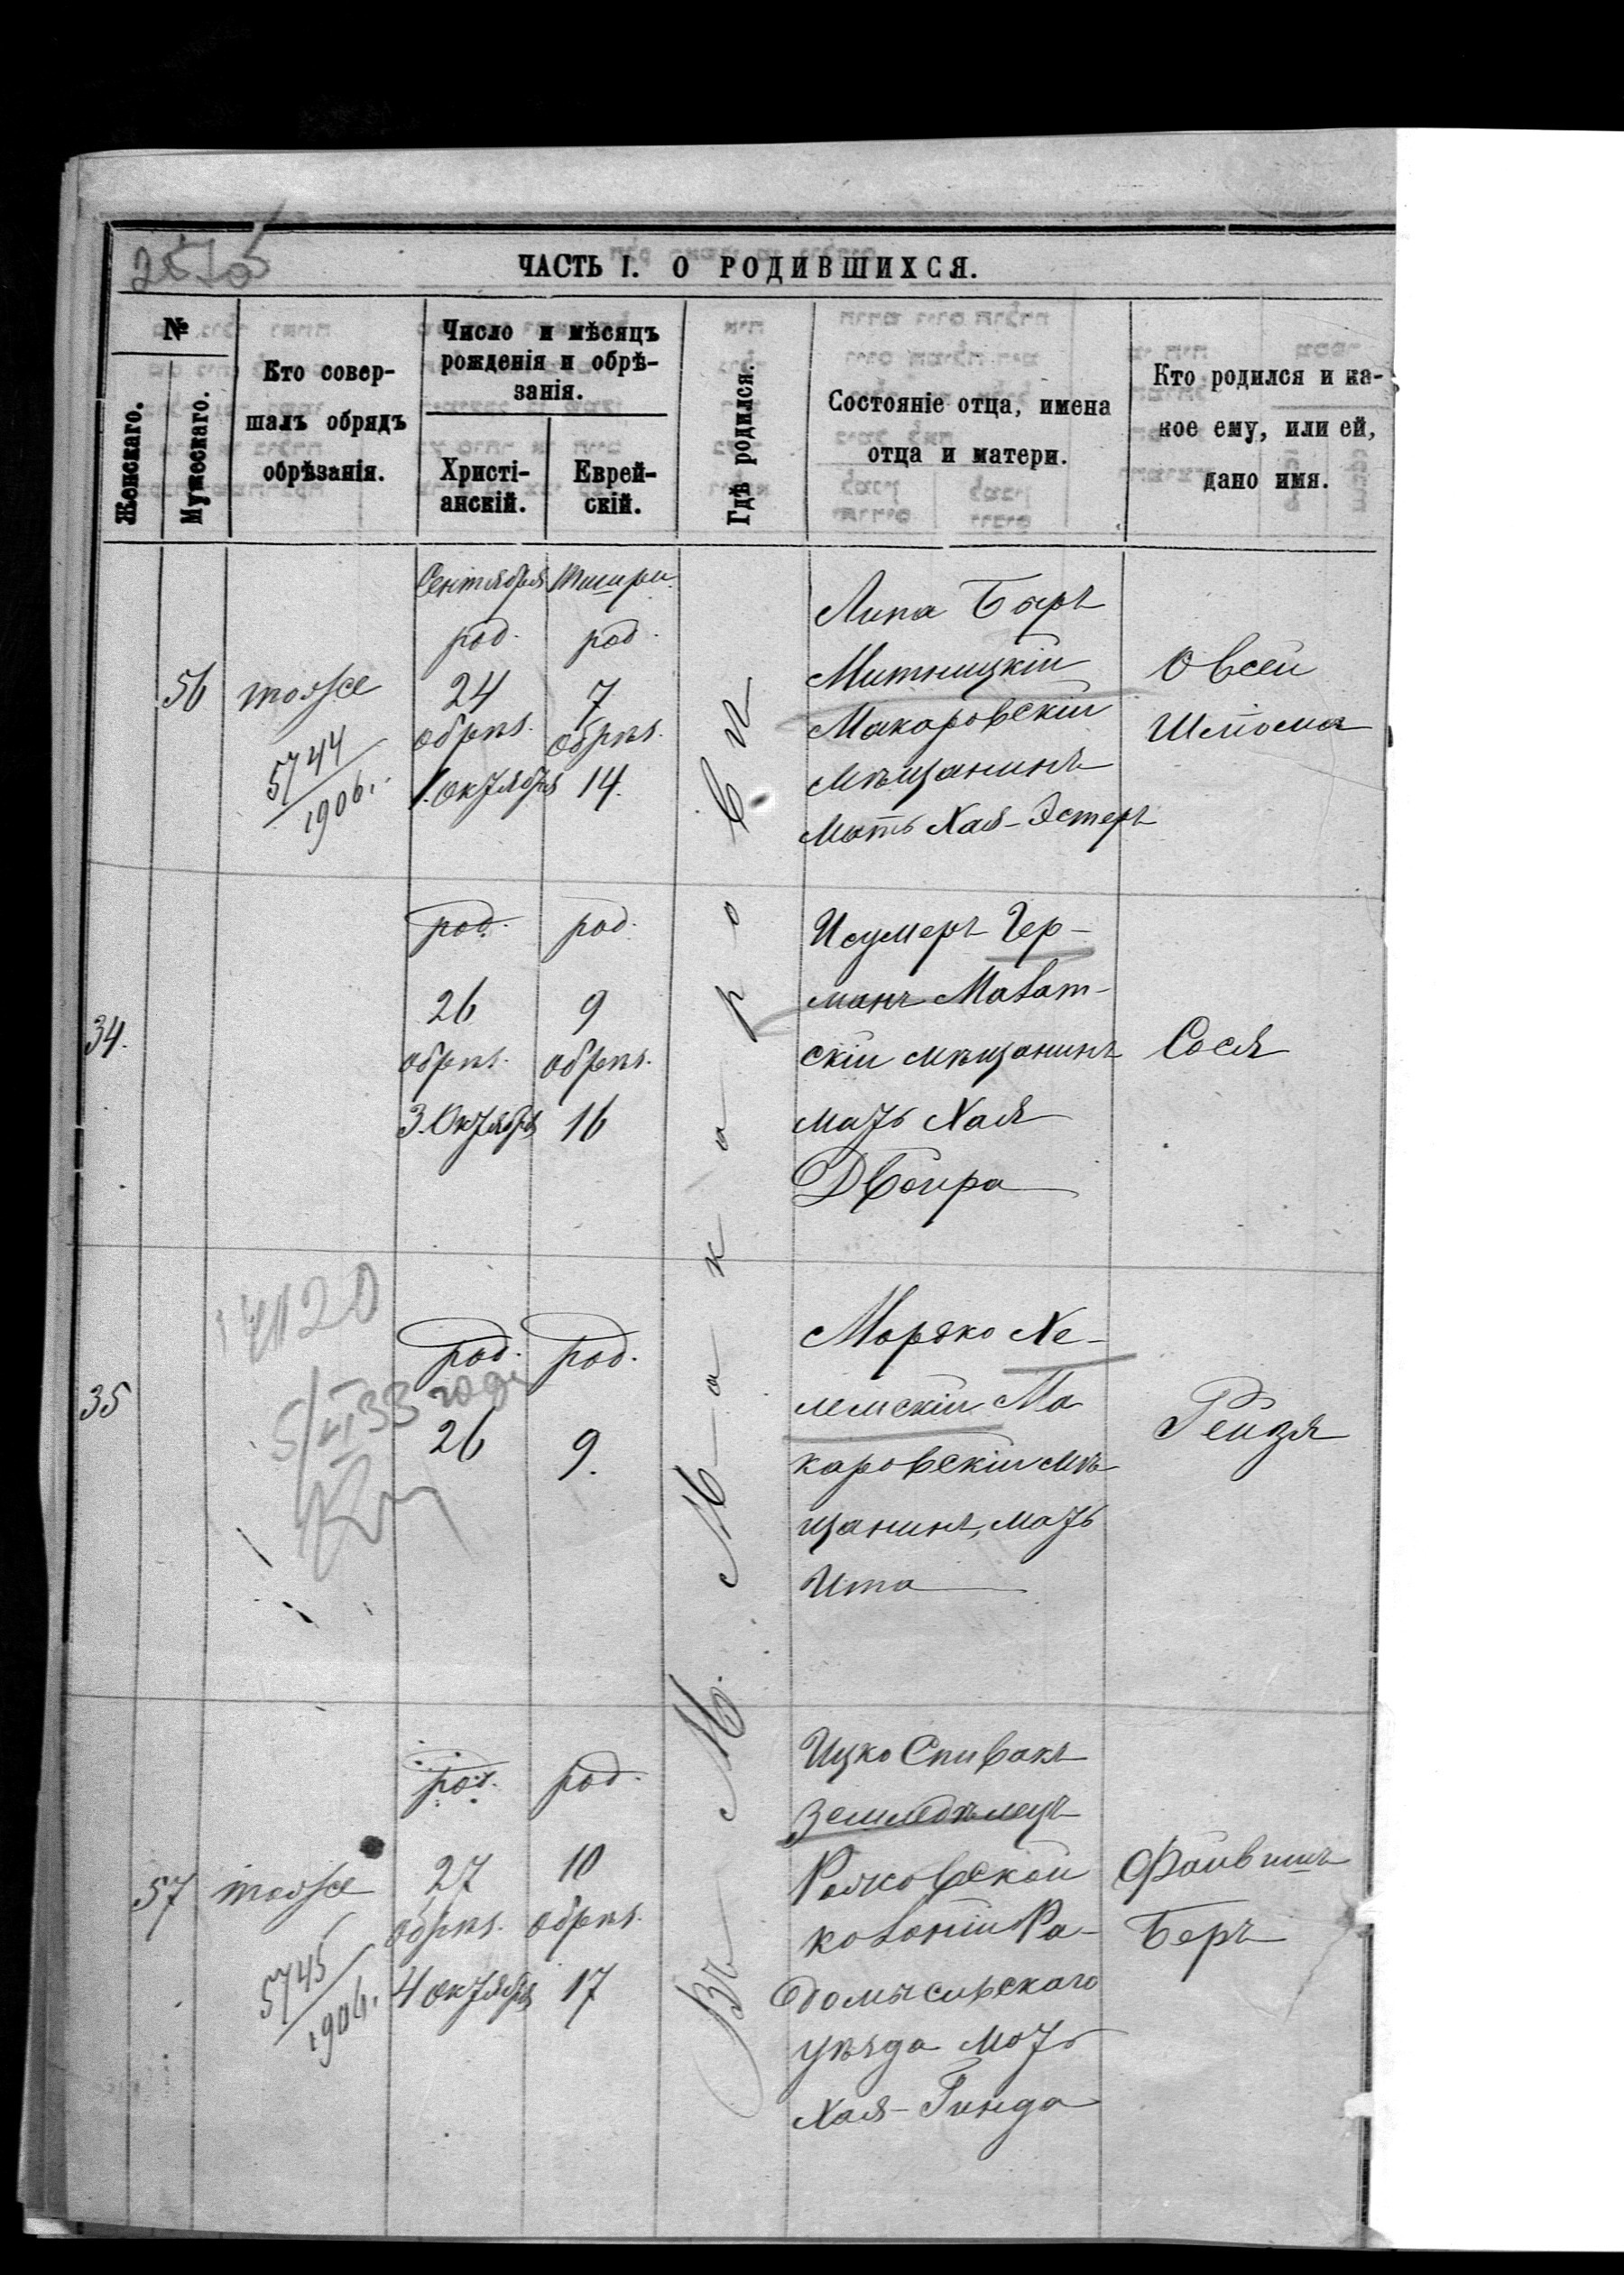 ЧАСТЬ I. О РОДИВШИХСЯ.
№
Женскаго.
Мужескаго.
Кто совер-
шалъ обрядъ
обрѣзанія.
Число и мѣсяцъ
рожденія и обрѣ-
занія.
Христі-
анскій.
Еврей-
скій.
Гдѣ родился.
Состояніе отца, имена
отца и матери.
Кто родился и ка-
кое ему, или ей,
дано имя.
Въ М. Макаровѣ
56
тоѣже
5744
1906г.
Сентября
род.
24
обрѣз.
1.октября
Тишри.
род.
7
обрѣз.
14.
Липа Беръ
Митницкій
Макаровскій
мѣщанинъ
Мать Хая-Эстеръ
Овсей
Шлюма
34.
род.
26
обрѣз.
3.Октября
род.
9
обрѣз.
16
Исумеръ Гер-
манъ
скій мѣщанинъ
мать Хая
Двойра
Сося
35
14120
5/VI 33 года
род.
26
род.
9.
Мордко Хе-
лемскій Ма
каровскій мѣ
щанинъ, мать
Ита
Рейзя
57
тоѣже
5745
1906г.
род.
27
обрѣз.
4 октября
род.
10
обрѣз.
17
Ицко Спивакъ
земледѣлецъ
колоніи Ра-
домысльскаго
уѣзда мать
Хая-Гинда
Файвишъ
Беръ